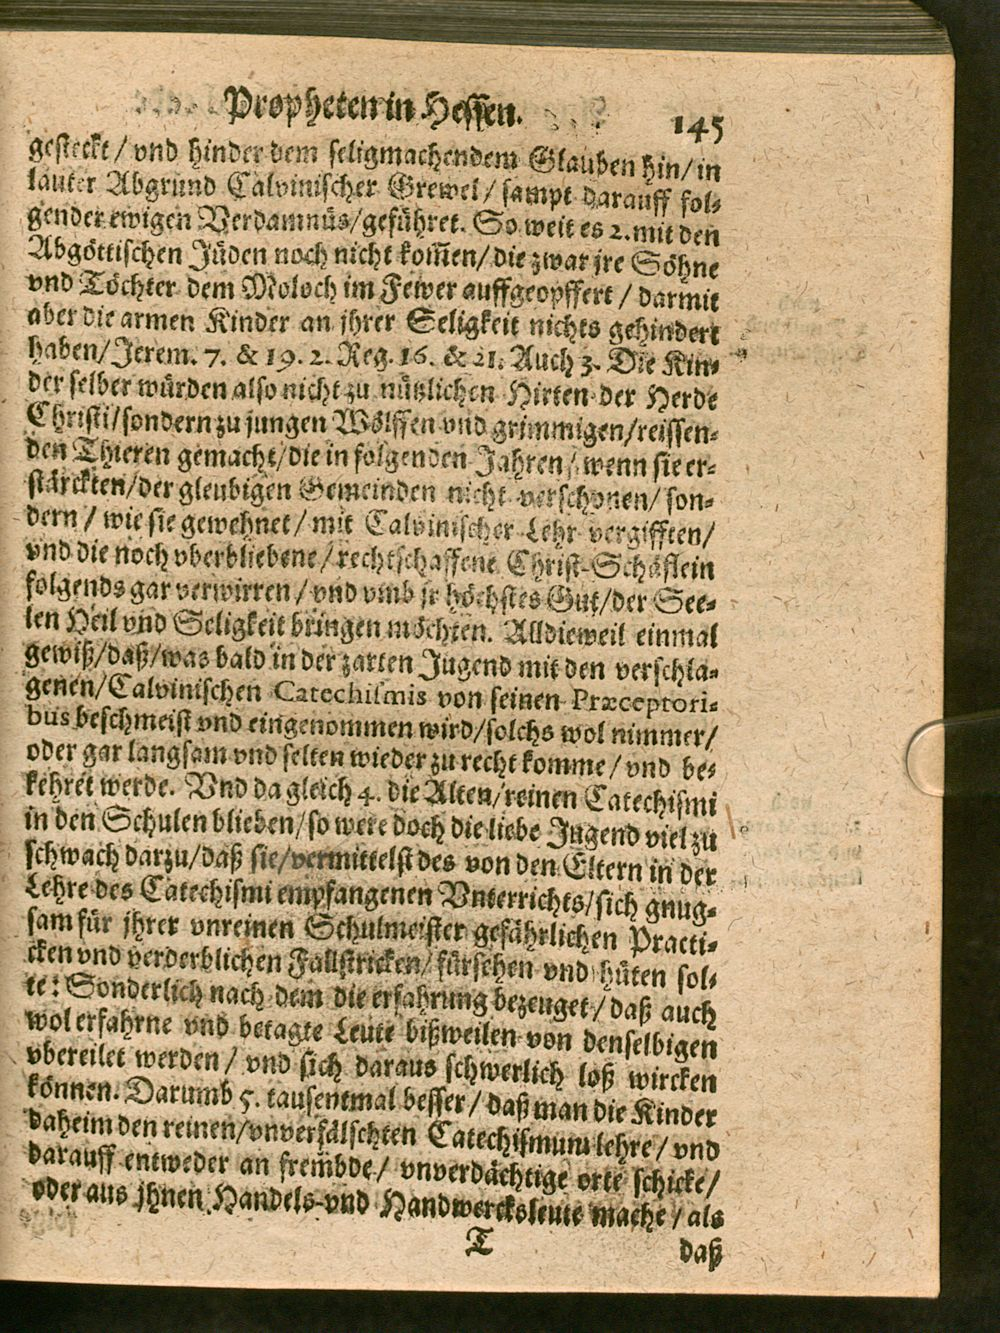 Propheten in Hessen. 145
gesteckt / vnd hinder dem seligmachendem Glauben hin / in
lauter Abgrund Calvinischer Grewel / sampt darauff fol-
gender ewigen Verdamnüs / geführet. So weit es 2. mit den
Abgöttischen Jüden noch nicht kom̃en / die zwar jre Söhne
vnd Töchter dem Moloch im Fewer auffgeopffert / darmit
aber die armen Kinder an jhrer Seligkeit nichts gehindert
haben / Jerem. 7. & 19. 2. Reg. 16. & 21. Auch 3. Die Kin-
der selber würden also nicht zu nützlichen Hirten der Herde
Christi / sondern zu jungen Wölffen vnd grimmigen / reissen-
den Thieren gemacht / die in folgenden Jahren / wenn sie er-
stärckten / der gleubigen Gemeinden nicht verschonen / son-
dern / wie sie gewehnet / mit Calvinischer Lehr vergifften /
vnd die noch vberbliebene / rechtschaffene Christ-Schäflein
folgends gar verwirren / vnd vmb jr höchstes Gut / der See-
len Heil vnd Seligkeit bringen möchten. Alldieweil einmal
gewiß / daß / was bald in der zarten Jugend mit den verschla-
genen / Calvinischen Catechismis von seinen Præceptori-
bus beschmeist vnd eingenommen wird / solchs wol nimmer /
oder gar langsam vnd selten wieder zu recht komme / vnd be-
kehret werde. Vnd da gleich 4. die Alten / reinen Catechismi
in den Schulen blieben / so were doch die liebe Jugend viel zu
schwach darzu / daß sie / vermittelst des von den Eltern in der
Lehre des Catechismi empfangenen Vnterrichts / sich gnug-
sam für jhrer vnreinen Schulmeister gefährlichen Practi-
cken vnd verderblichen Fallstricken / fürsehen vnd hüten sol-
te: Sonderlich nach dem die erfahrung bezeuget / daß auch
wol erfahrne vnd betagte Leute bißweilen von denselbigen
vbereilet werden / vnd sich daraus schwerlich loß wircken
können. Darumb 5. tausentmal besser / daß man die Kinder
daheim den reinen / vnverfälschten Catechismum lehre / vnd
darauff entweder an frem̃bde / vnverdächtige orte schicke /
oder aus jhnen Handels- vnd Handwercksleute mache / als
T daß